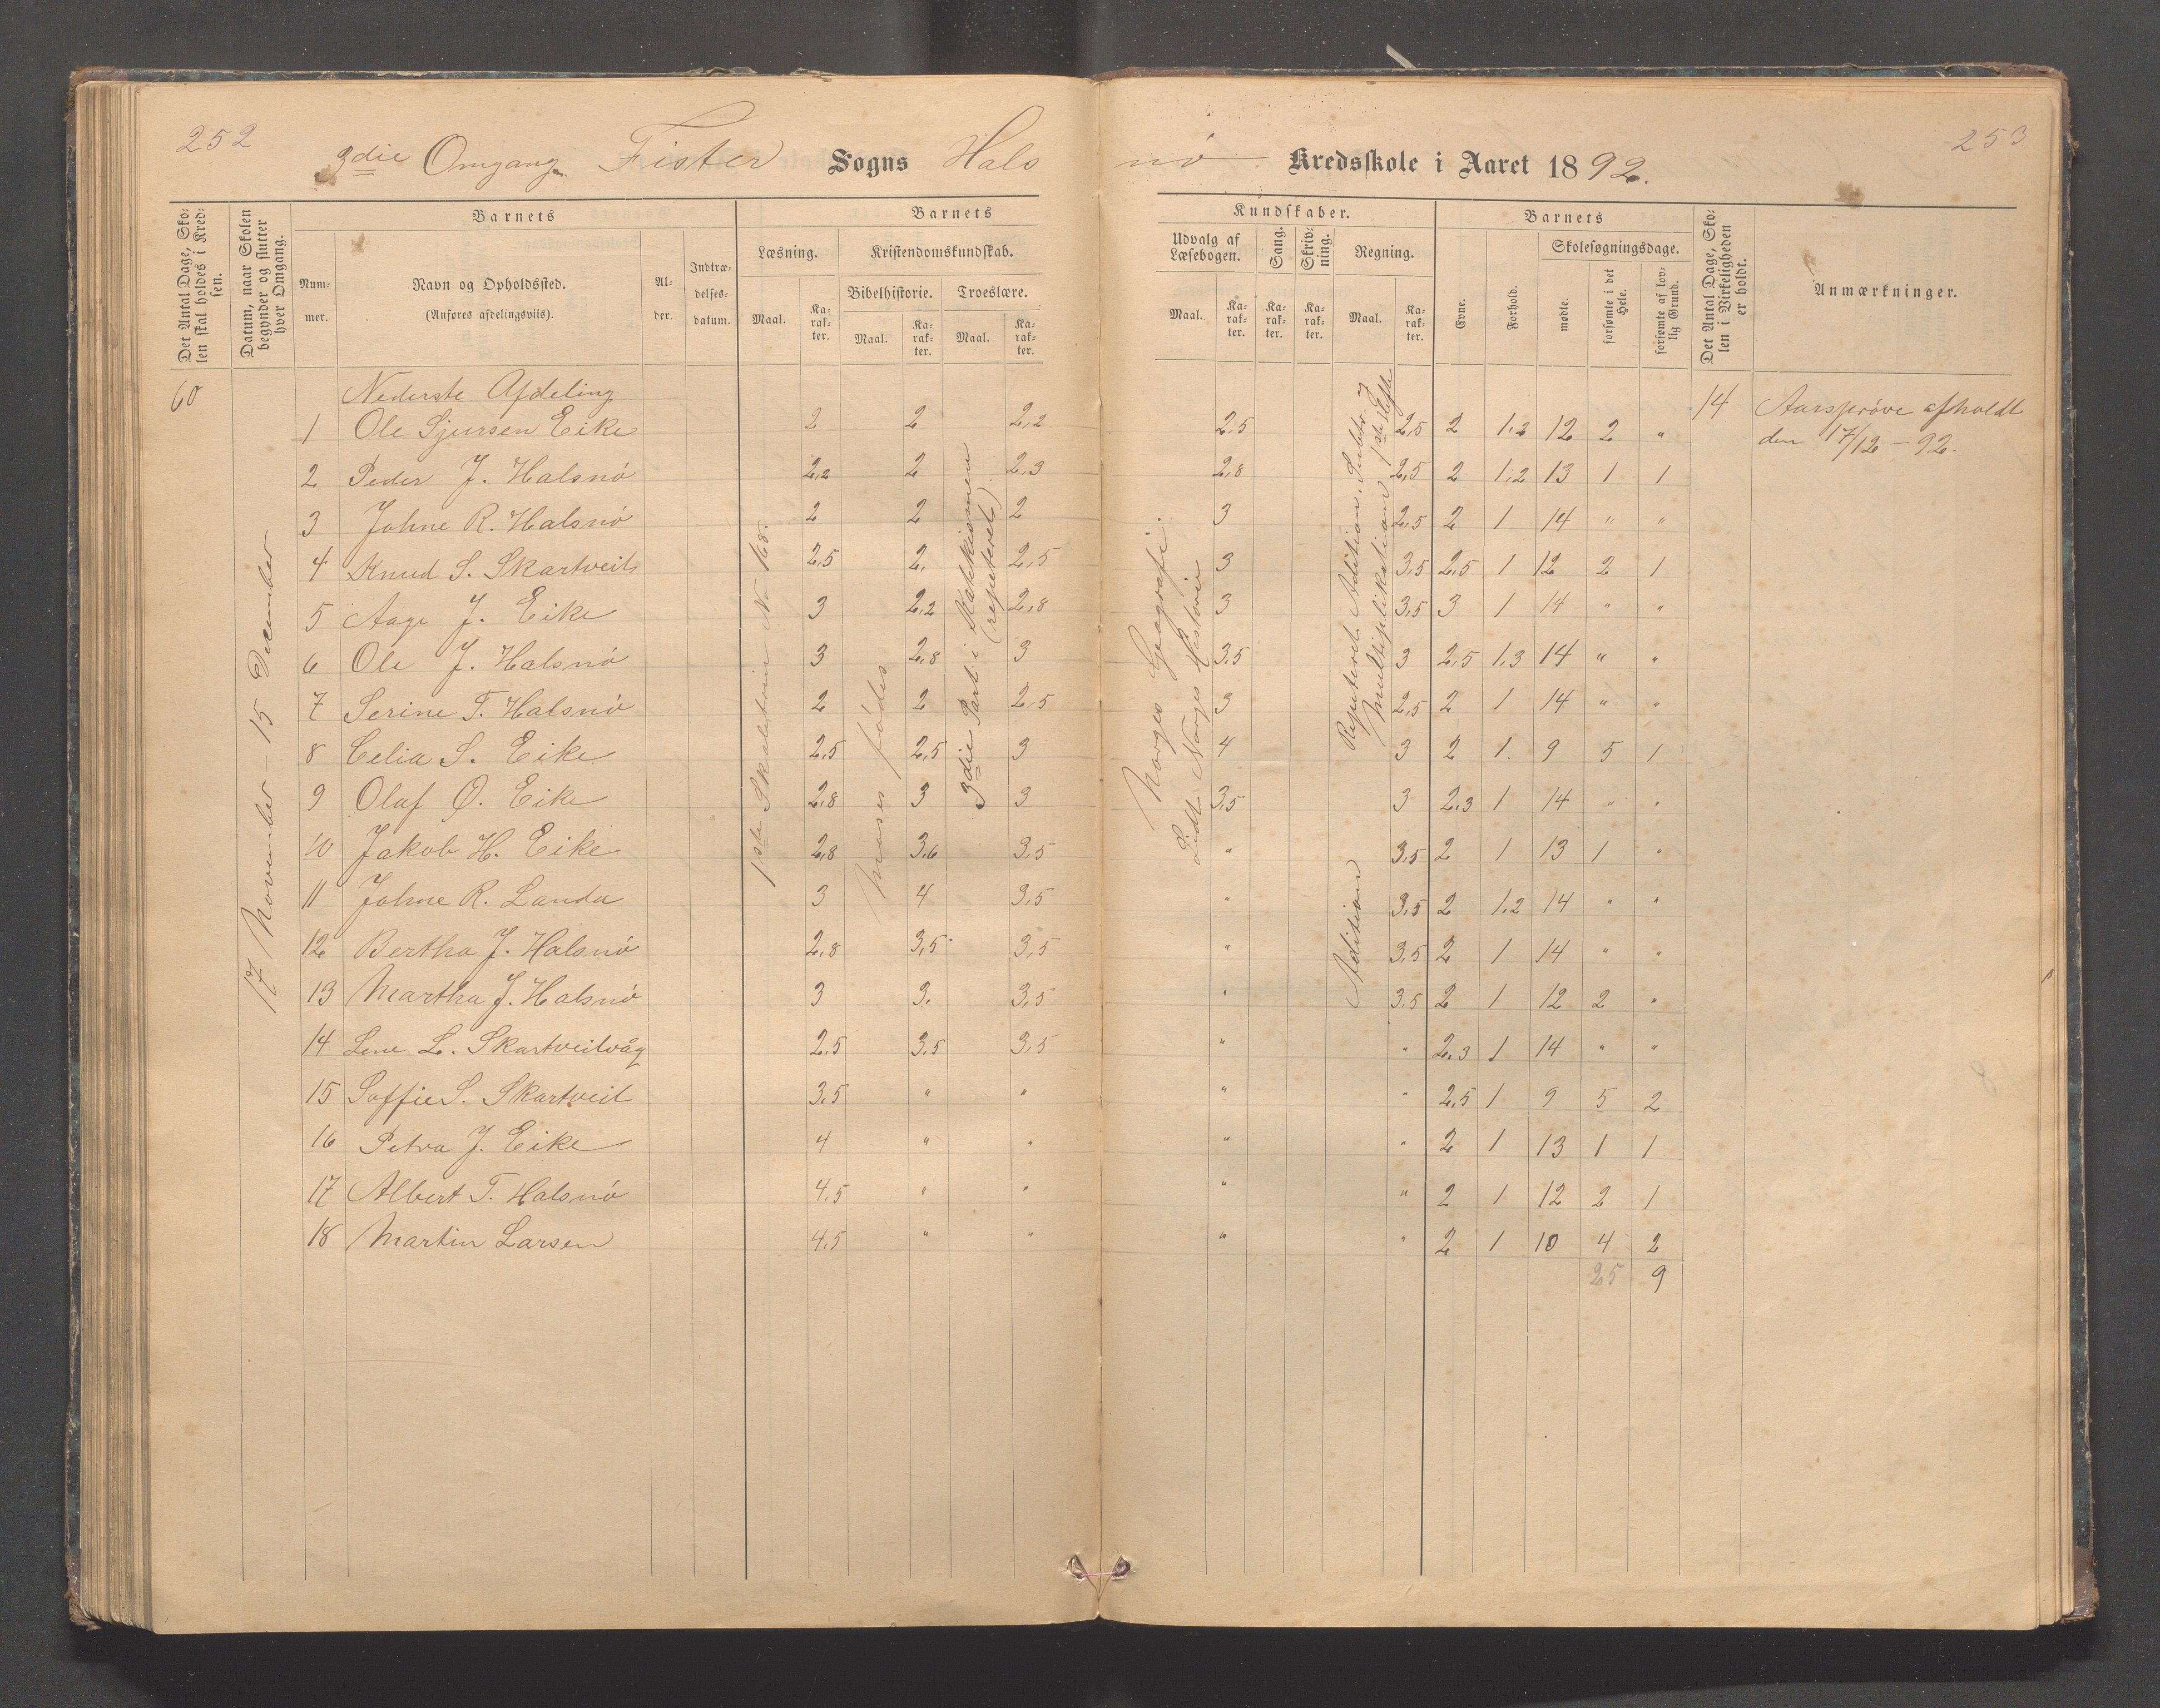 252
3die Omgang. Fister Sogns Halsnö Kredsskole i Aaret 1892.
253
Det Antal Dage, Skolen skal holdes i Kredsen.
Datum, naar Skolen begynder og slutter hver Omgang.
Barnets
Nummer.
Navn og Opholdssted.
(Anføres afdelingsviis).
Alder.
Indtrædelsesdatum.
Barnets Kundskaber.
Læsning.
Maal.
Karakter.
Kristendomskundskab.
Bibelhistorie.
Maal.
Karakter.
Troeslære.
Maal.
Karakter.
Udvalg af Læsebogen.
Maal.
Karakter.
Sang.
Karakter.
Skrivning.
Karakter.
Regning.
Maal.
Karakter.
Barnets
Evne.
Forhold.
Skolesøgningsdage.
mødte.
forsømte i det Hele.
forsømte af lovlig Grund.
Det Antal Dage, Skolen i Virkeligheden er holdt.
Anmærkninger.
60
17 November - 15 December
Nederste Afdeling
1ste Skoletrin No 168.
Moses fødes
3die Part i Katekismen (repeteret)
Norges Geografi.
Lidt Norges Historie
Repeteret Adition, Subtr. og Multiplikation 1ste Hefte
Adition
14
Aarsprøve afholdt
den 17/12 - 92.
1 Ole Sjursen Eike 2 2 2,2 2,5 2,5 2 1,2 12 2 "
2 Peder J. Halsnö 2,2 2 2,3 2,8 2,5 2 1,2 13 1 1
3 Johne R. Halsnö 2 2 2 3 2,5 2 1 14 " "
4 Knud S. Skartveit 2,5 2. 2,5 3 3,5 2,5 1 12 2 1
5 Aage J. Eike 3 2,2 2,8 3 3,5 3 1 14 " "
6 Ole J. Halsnö 3 2,8 3 3,5 3 2,5 1,3 14 " "
7 Serine T. Halsnö 2 2 2,5 3 2,5 2 1 14 " "
8 Celia S. Eike 2,5 2,5 3 4 3 2 1. 9 5 1
9 Olaf O. Eike 2,8 3 3 3,5 3 2,3 1 14 " "
10 Jakob H. Eike 2,8 3,6 3,5 " 3,5 2 1 13 1 "
11 Johne R. Landa 3 4 3,5 " 3,5 2 1,2 14 " "
12 Bertha J. Halsnö 2,8 3,5 3,5 " 3,5 2 1 14 " "
13 Martha J. Halsnö 3 3. 3,5 " 3,5 2 1 12 2 "
14 Lene L. Skartveitvåg 2,5 3,5 3,5 " " 2,3 1 14 " "
15 Soffie S. Skartveit 3,5 " " " " 2,5 1 9 5 2
16 Petra J. Eike 4 " " " " 2 1 13 1 1
17 Albert T. Halsnö 4,5 " " " " 2 1 12 2 1
18 Martin Larsen 4,5 " " " " 2 1 10 4 2
25 9